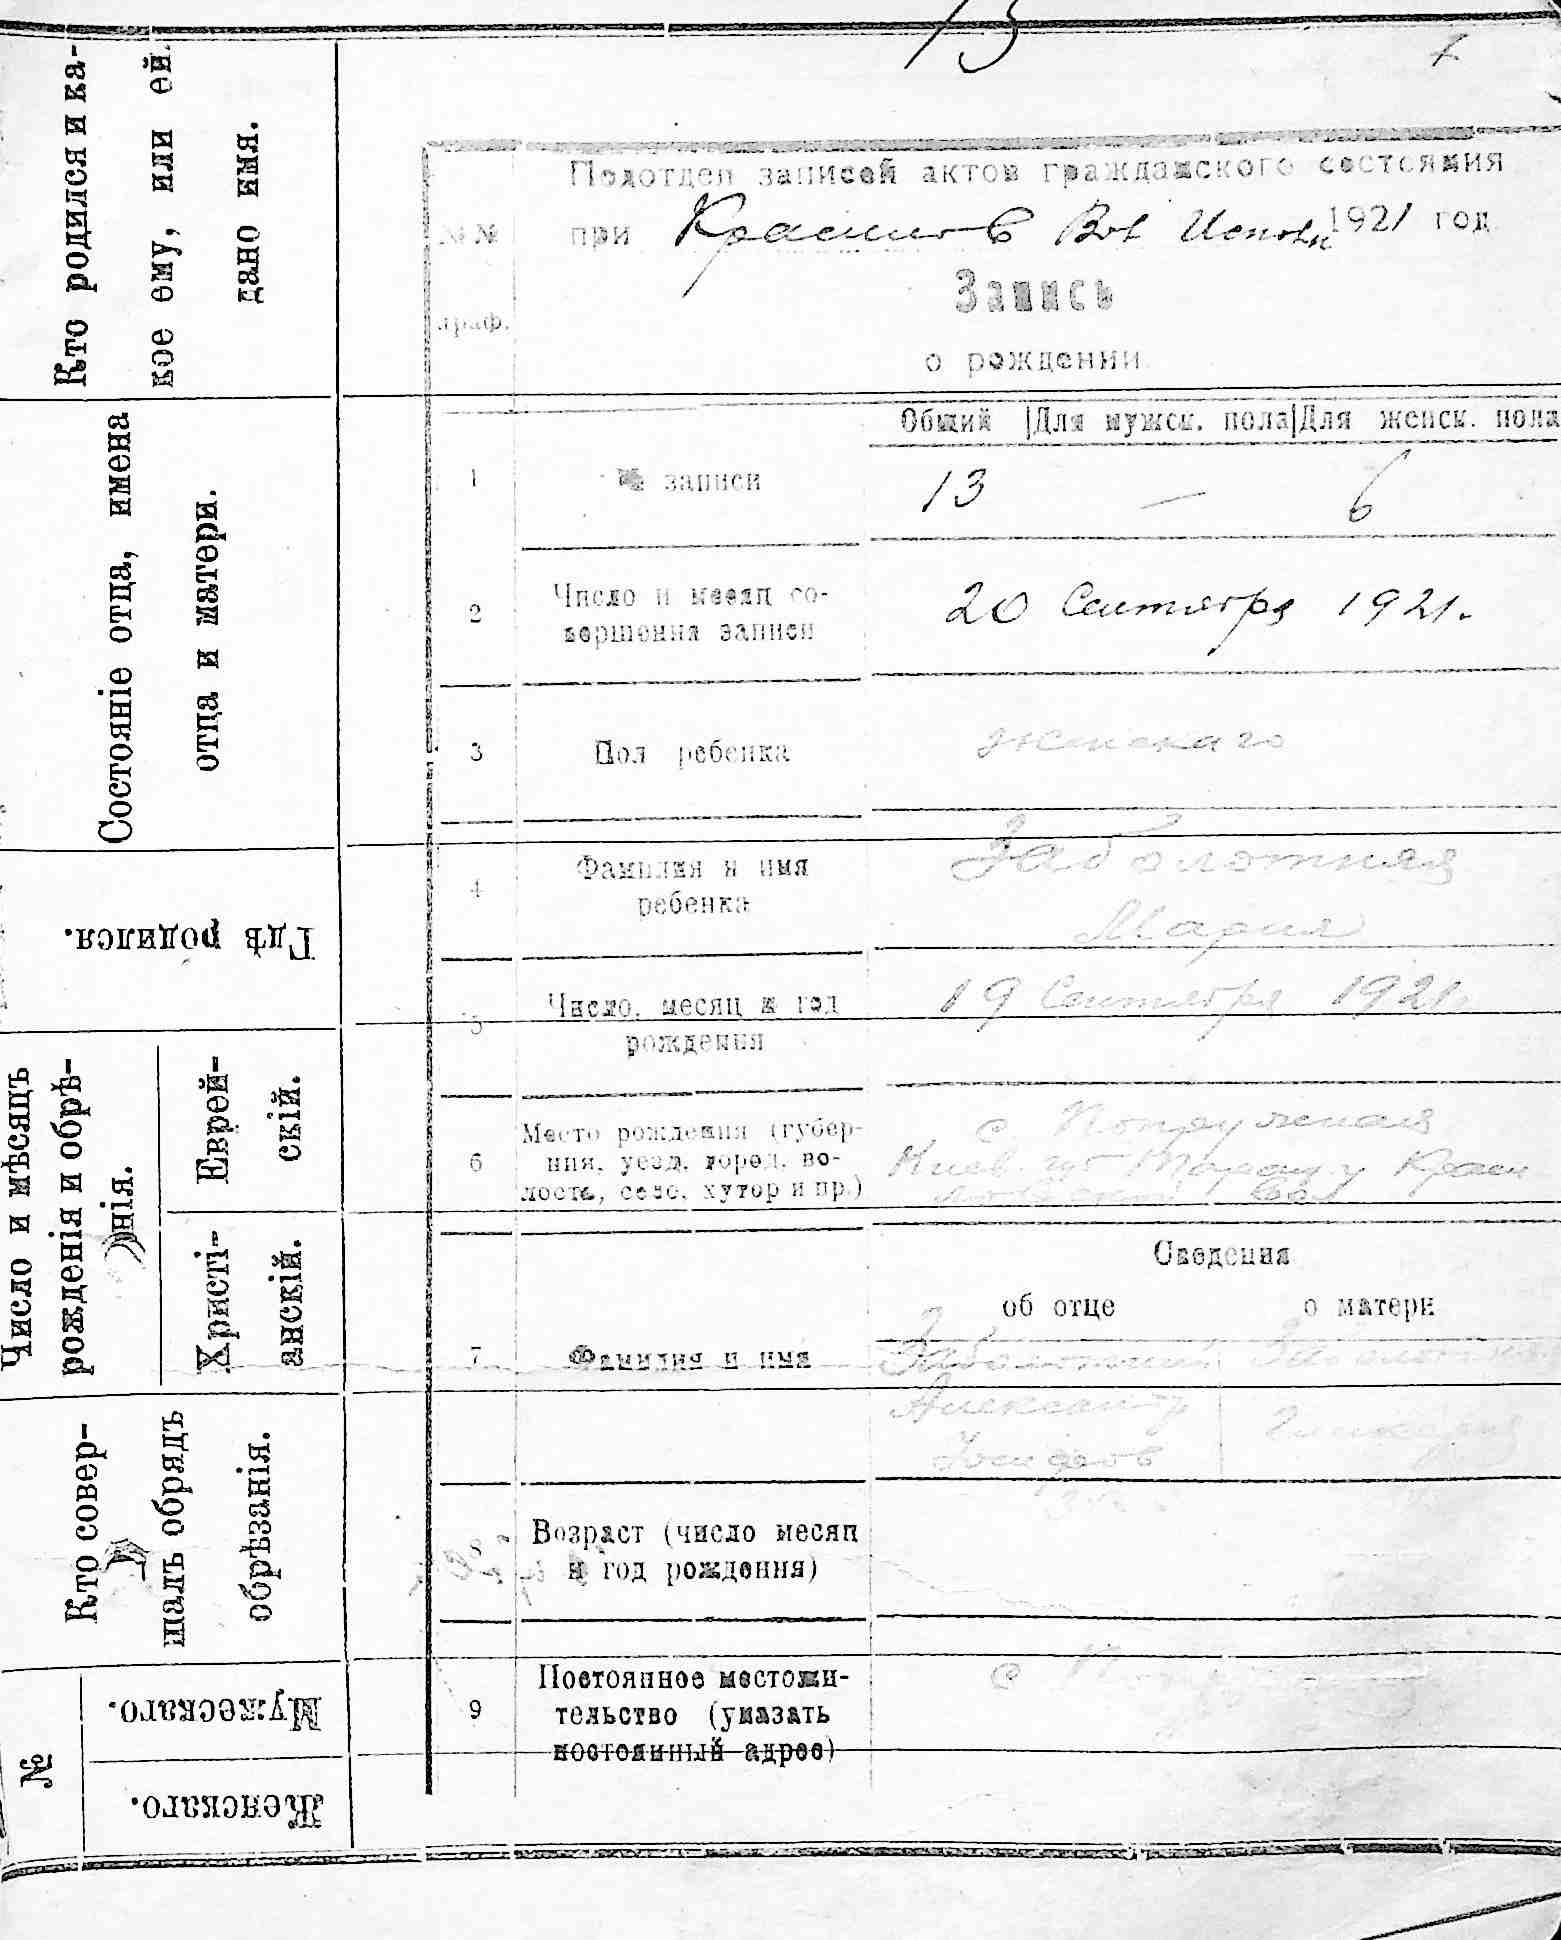 13
1
Кто родился и ка-
кое ему, или ей
дано имя.
Состояніе отца, имена
отца и матери.
Гдѣ родился.
Число и мѣсяцъ
рожденія и обрѣ-
нія.
Еврей-
скій.
Христі-
анскій.
Кто совер-
шалъ обрядъ
обрѣзанія.
№
Мужескаго.
Женскаго.
№№
граф.
Подотдел записей актов гражданского состояния
при Вол Исполк 1921 год
Запись
о рождении.
Общий |Для мужск. пола|Для женск. пола
1 № записи 13 — 6
2 Число и месяц со-
вершения записи
20 Сентября 1921.
3 Пол ребенка женскаго
4 Фамилия и имя
ребенка
Заболотная
Мария
5 Число, месяц и год
рождения
19 Сентября 1921.
6 Место рождения (губер-
ния, уезд, город, во-
лость, село, хутор и пр.)
с.
Киев. губ Таращ. у
вол
Сведения
об отце о матери
7 Фамилия и имя
Заболотный
Александр
8 Возраст (число месяц
и год рождения)
9 Постоянное местожи-
тельство (указать
постоянный адрес)
с